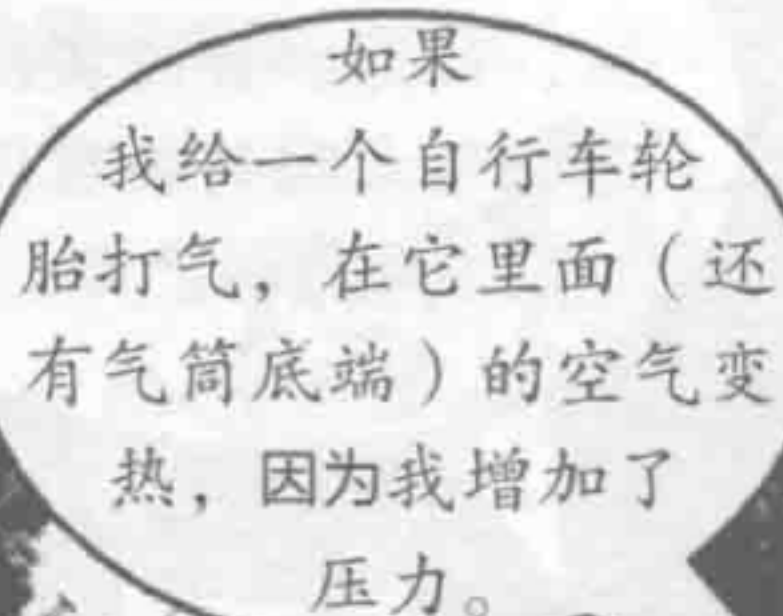 如果
我给一个自行车轮
胎打气，在它里面（还
有气筒底端）的空气变
热，因为我增加了
压力。